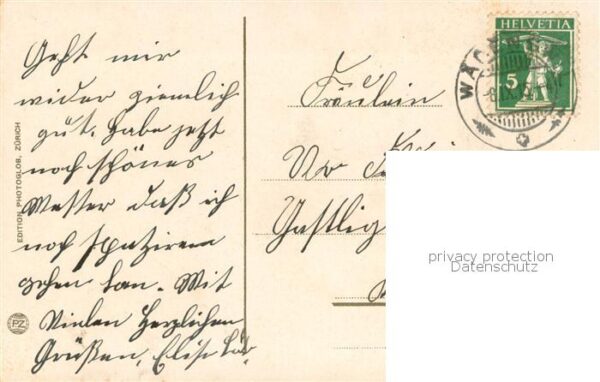 Geht mir
wider ziemlich
gut. Habe jetzt
noch schönes
Wetter daß ich
noch spaziren
gehen kan. Mit
Vielen Herzlichen
Grüßen, Elise
EDITION PHOTOGLOB, ZÜRICH
PZ
Fräulein
HELVETIA
5
privacy protection
Datenschutz